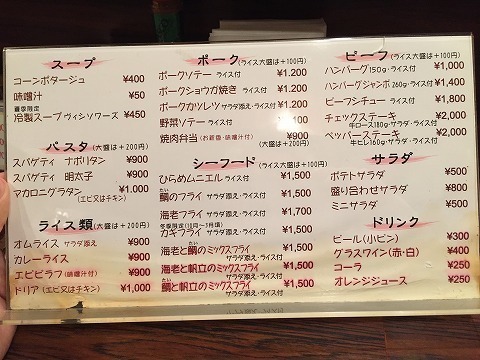 スープ
コーンポタージュ ¥400
味噌汁 ¥50
夏季限定
冷製スープ ヴィシソワーズ ¥450
パスタ (大盛は+200円)
スパゲティ ナポリタン ¥900
スパゲティ 明太子 ¥900
マカロニグラタン ¥1.000
(エビ又はチキン)
ライス類 (大盛は+200円)
オムライス サラダ添え ¥900
カレーライス ¥900
エビピラフ (味噌汁付) ¥900
ドリア (エビ又はチキン) ¥1,000
ポーク (ライス大盛は+100円)
ポークソテー ライス付 ¥1.200
ポークショウガ焼き ライス付 ¥1.200
ポークカツレツ サラダ添え・ライス付 ¥1.200
野菜ソテー ライス付 ¥1.100
焼肉弁当 (お新香・味噌汁付) ¥900
(大盛は+100円)
シーフード (ライス大盛は+100円)
ひらめムニエル ライス付 ¥1,500
鯛のフライ サラダ添え・ライス付 ¥1,500
海老フライ サラダ添え・ライス付 ¥1,700
冬季限定(10月〜3月頃)
カキフライ サラダ添え・ライス付 ¥1,500
海老と鯛のミックスフライ ¥1,500
サラダ添え・ライス付
海老と帆立のミックスフライ ¥1,500
サラダ添え・ライス付
鯛と帆立のミックスフライ ¥1,500
サラダ添え・ライス付
ビーフ (ライス大盛は+100円)
ハンバーグ 150g・ライス付 ¥1,000
ハンバーグジャンボ 260g・ライス付 ¥1,400
ビーフシチュー ライス付 ¥1,800
チェックステーキ ¥2,000
牛ロース180g・サラダ・ライス付
ペッパーステーキ ¥2,000
牛ヒレ160g・サラダ・ライス付
サラダ
ポテトサラダ ¥500
盛り合わせサラダ ¥800
ミニサラダ ¥500
ドリンク
ビール(小ビン) ¥300
グラスワイン(赤・白) ¥400
コーラ ¥250
オレンジジュース ¥250